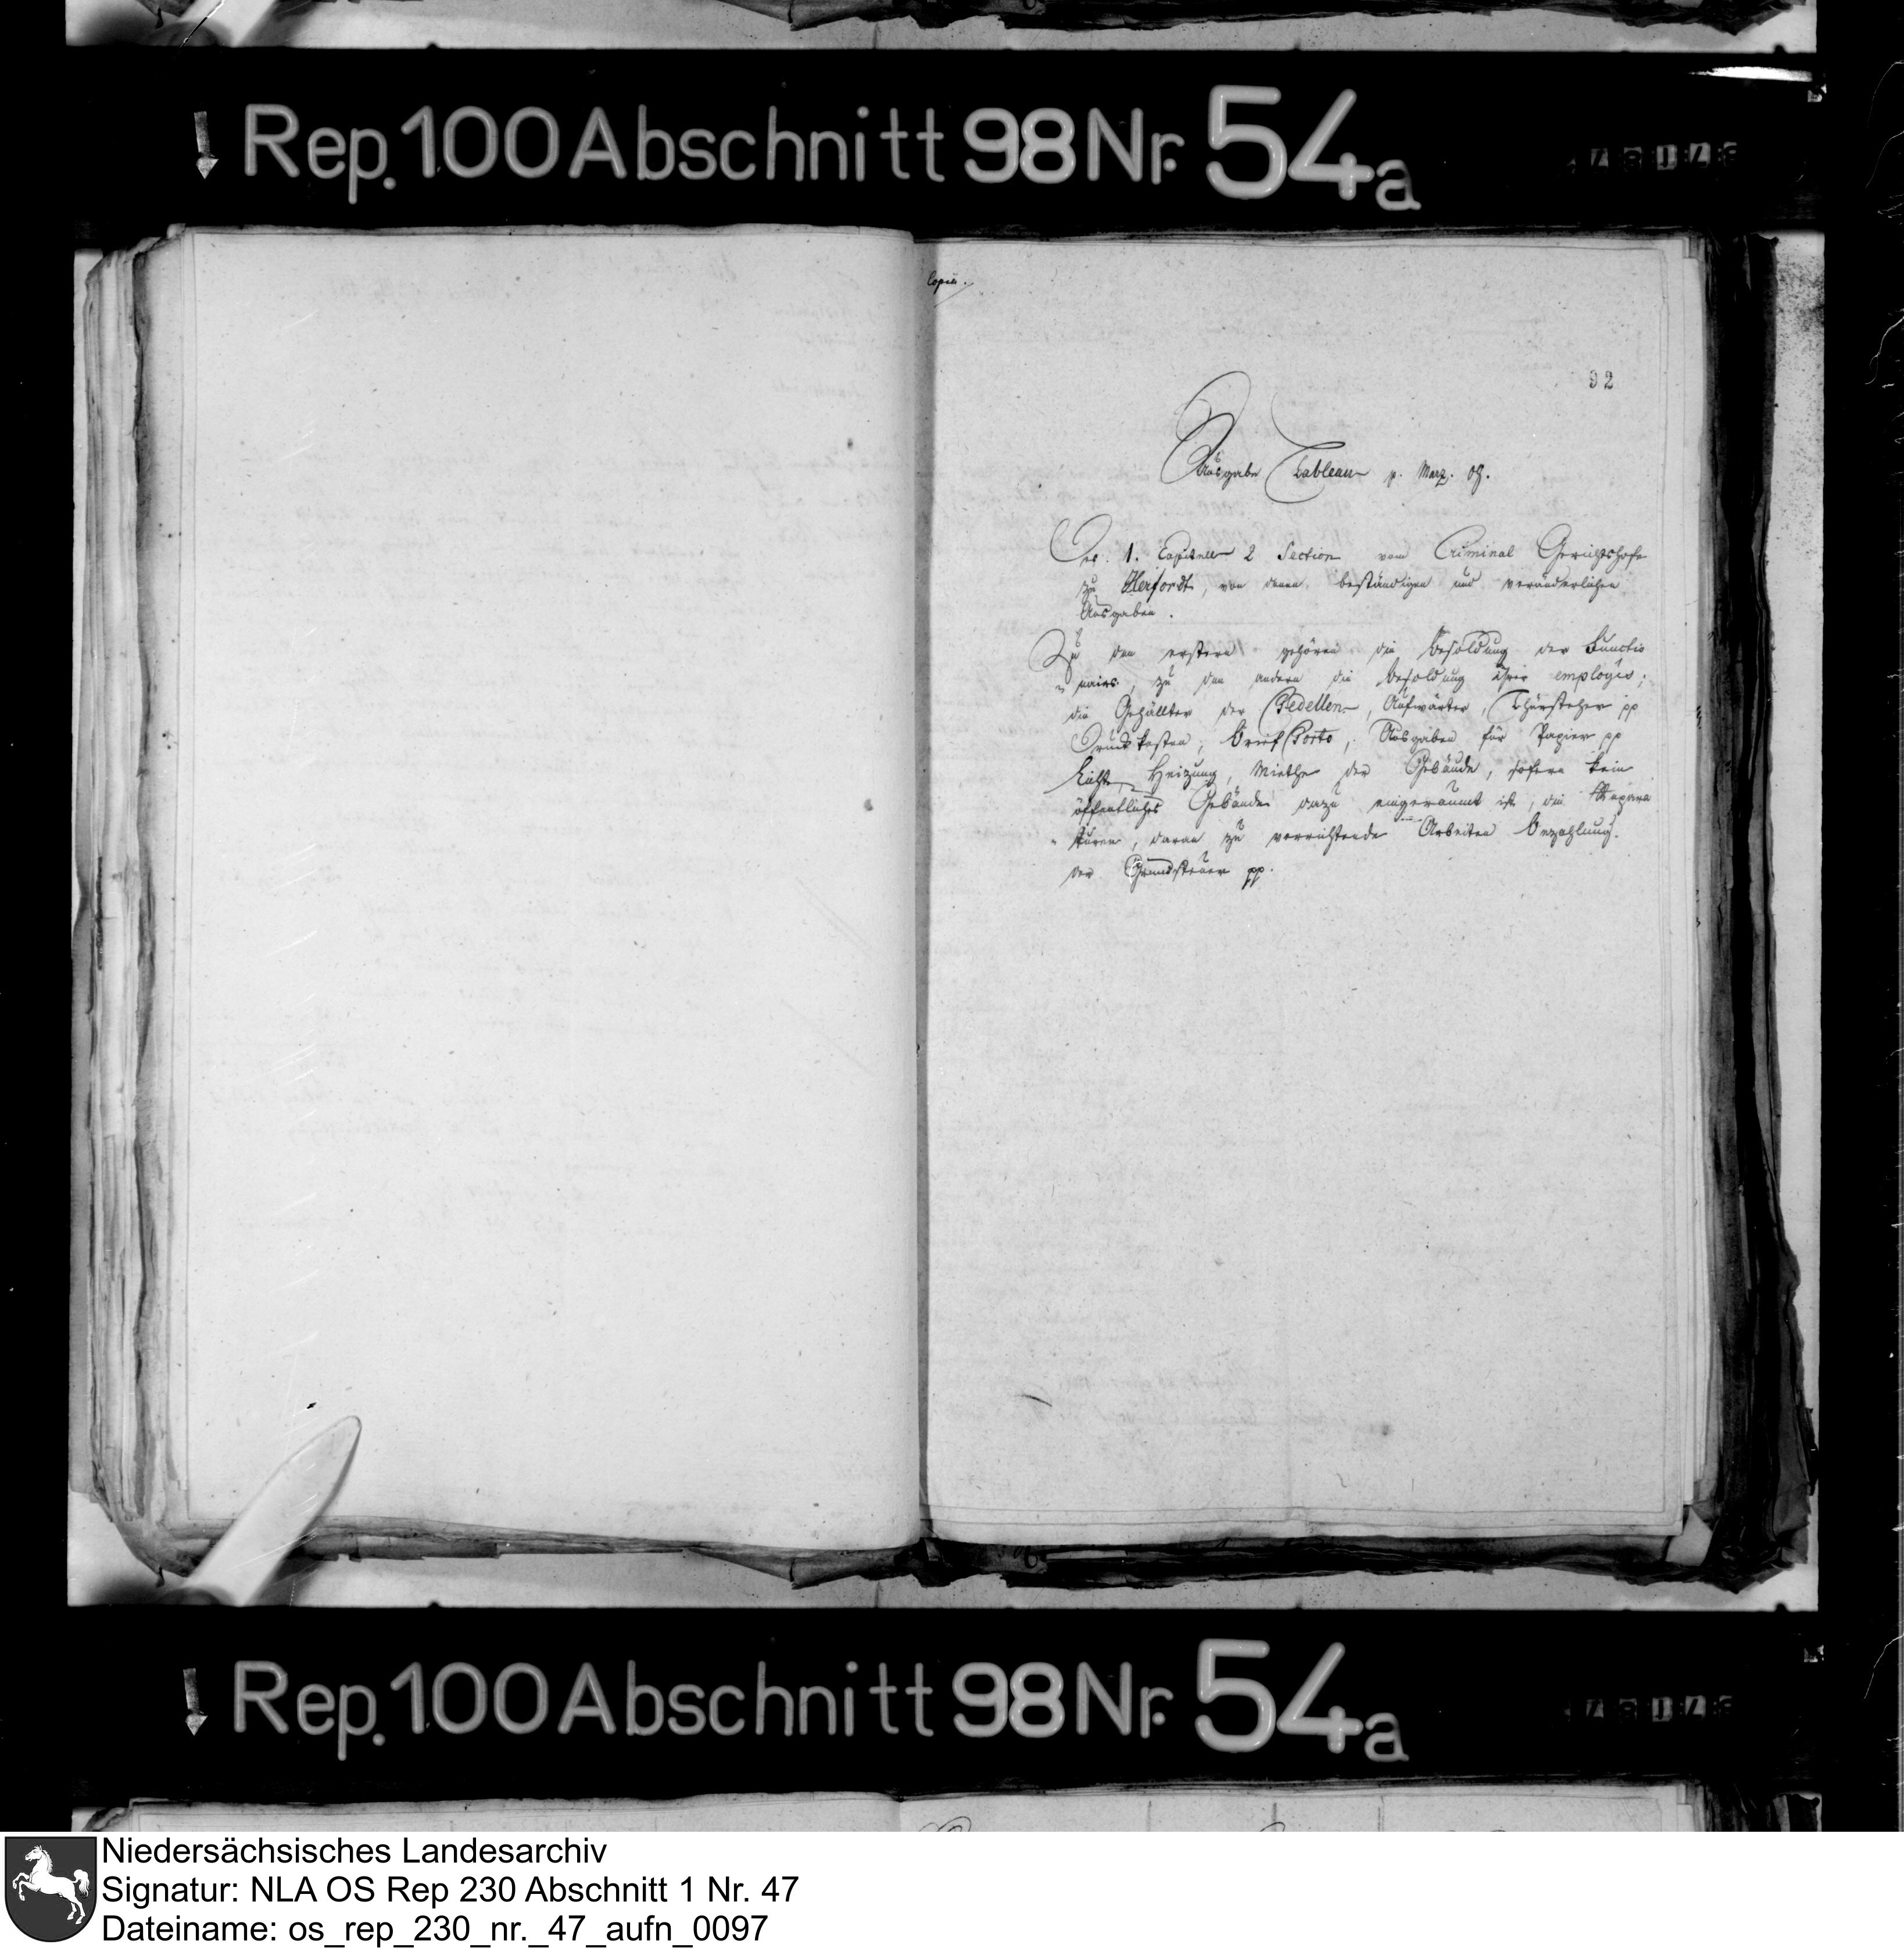 Rep. 100 Abschnitt 98 Nr. 54a
Copia.
92
Ausgabe Tableau p. Marz. 08.
1. Capittell 2 Section vom Criminal Gerichtshofe
zu Herfordt, von denen beständigen und veränderlichen
Ausgaben.
Zu den erstern gehören die Besoldung der Functio
"nairs, zu den andern die Besoldung ihrer employés;
die Gehällter der Pedellen, Aufwärter, Thürsteher pp
Druckkosten, Brief Porto, Ausgaben für Papier pp
Licht, Heizung, Miethe der Gebäude, sofern kein
öffentliches Gebäude dazu eingeräumt ist, die Repara
"turen, daran zu verrichtende Arbeiten Bezahlung.
der Grundsteuer pp.
Rep. 100 Abschnitt 98 Nr. 54a
Niedersächsisches Landesarchiv
Signatur: NLA OS Rep 230 Abschnitt 1 Nr. 47
Dateiname: os_rep_230_nr._47_aufn_0097